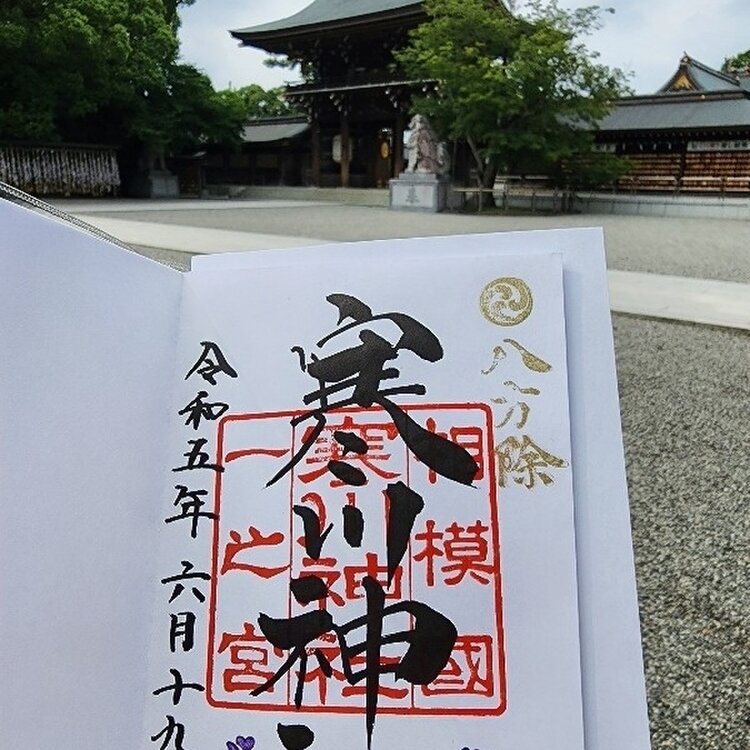 八方除
寒川神
相模國
寒川神社
一之宮
令和五年六月十九